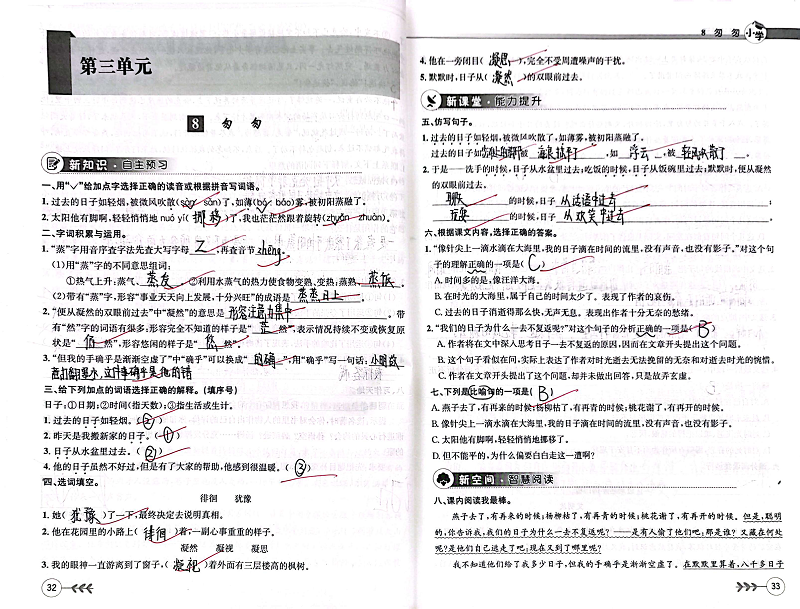 第三单元
8 匆 匆
新知识·自主预习
一、用“✓”给加点字选择正确的读音或根据拼音写词语。
1. 过去的日子如轻烟,被微风吹散(sǎn sàn)了,如薄(bó báo)雾,被初阳蒸融了。
2. 太阳他有脚啊,轻轻悄悄地 nuó yí( 挪移 )了,我也茫茫然跟着旋转(zhuǎn zhuàn)。
二、字词积累与运用。
1. “蒸”字用音序查字法先查大写字母 Z ,再查音节 zhēng。
(1)用“蒸”字的不同意思组词:
①热气上升:蒸气、 蒸发 ②利用水蒸气的热力使食物变熟、变热:蒸熟、 蒸饭
(2)带有“蒸”字,形容“事业天天向上发展,十分兴旺”的成语是 蒸蒸日上 。
2. “便从凝然的双眼前过去”中“凝然”的意思是 形容注意力集中 。带
有“然”字的词语有很多:形容完全不知道的样子是“ 茫 然”,表示情况持续不变或恢复原
状是“ 依 然”,形容悠闲的样子是“ 悠 然”。
3. “但我的手确乎是渐渐空虚了”中“确乎”可以换成“ 的确 ”,用“确乎”写一句话:
三、给下列加点的词语选择正确的解释。(填序号)
日子:①日期;②时间(指天数);③指生活或生计。
1. 过去的日子如轻烟。( ② )
2. 昨天是我搬新家的日子。( ① )
3. 日子从水盆里过去。( ② )
4. 他的日子虽然不好过,但是有了大家的帮助,他感到很温暖。( ③ )
四、选词填空。
徘徊 犹豫
1. 她( 犹豫 )了一下,最终决定去说明真相。
2. 他在花园里的小路上( 徘徊 )着,一副心事重重的样子。
凝然 凝视 凝思
3. 我的眼神一直游离到了窗子( 凝视 )着外面有三层楼高的枫树。
32
8 匆 匆 小学
4. 他在一旁闭目( 凝思 ),完全不受周遭噪声的干扰。
5. 默默时,日子从( 凝然 )的双眼前过去。
新课堂·能力提升
五、仿写句子。
1. 过去的日子如轻烟,被微风吹散了,如薄雾,被初阳蒸融了。
过去的日子如 被 海浪拍打 ,如 浮云 ,被 轻风吹散了 。
2. 于是——洗手的时候,日子从水盆里过去;吃饭的时候,日子从饭碗里过去;默默时,便从凝然
的双眼前过去。
聊天 的时候,日子 从话语中过去
玩耍 的时候,日子 从欢笑中过去
六、根据课文内容,选择正确的答案。
1. “像针尖上一滴水滴在大海里,我的日子滴在时间的流里,没有声音,也没有影子。”对这个句
子的理解正确的一项是( C )。
A. 时间多的是,像汪洋大海。
B. 在时光的大海里,属于自己的时间太少了。表现了作者的哀伤。
C. 过去的日子消逝得那么快,无声无息。表现出作者十分无奈的愁绪。
2. “我们的日子为什么一去不复返呢?”对这个句子的分析正确的一项是( B )
A. 作者将在文中深入思考日子一去不复返的原因,因而在文章开头提出这个问题。
B. 这个句子看似在问,实际上表达了作者对时光逝去无法挽留的无奈和对逝去时光的惋惜。
C. 作者在文章开头提出了这个问题,却并未做出回答,只是故弄玄虚。
七、下列是比喻句的一项是( B )
A. 燕子去了,有再来的时候;杨柳枯了,有再青的时候;桃花谢了,有再开的时候。
B. 像针尖上一滴水滴在大海里,我的日子滴在时间的流里,没有声音,也没有影子。
C. 太阳他有脚啊,轻轻悄悄地挪移了。
D. 但不能平的,为什么偏要白白走这一遭啊?
新空间·智慧阅读
八、课内阅读我最棒。
燕子去了,有再来的时候;杨柳枯了,有再青的时候;桃花谢了,有再开的时候。但是,聪明
的,你告诉我,我们的日子为什么一去不复返呢?——是有人偷了他们吧:那是谁?又藏在何处
呢?是他们自己逃走了吧:现在又到了哪里呢?
我不知道他们给了我多少日子,但我的手确乎是渐渐空虚了。在默默里算着,八千多日子
33